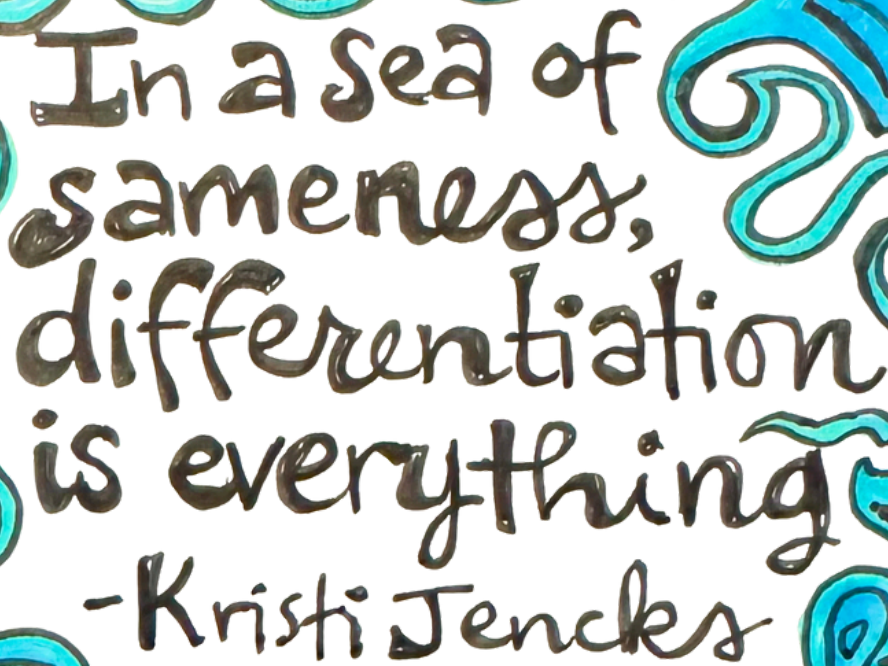 In a sea of
sameness,
differentiation
is everything
-Kristi Jencks